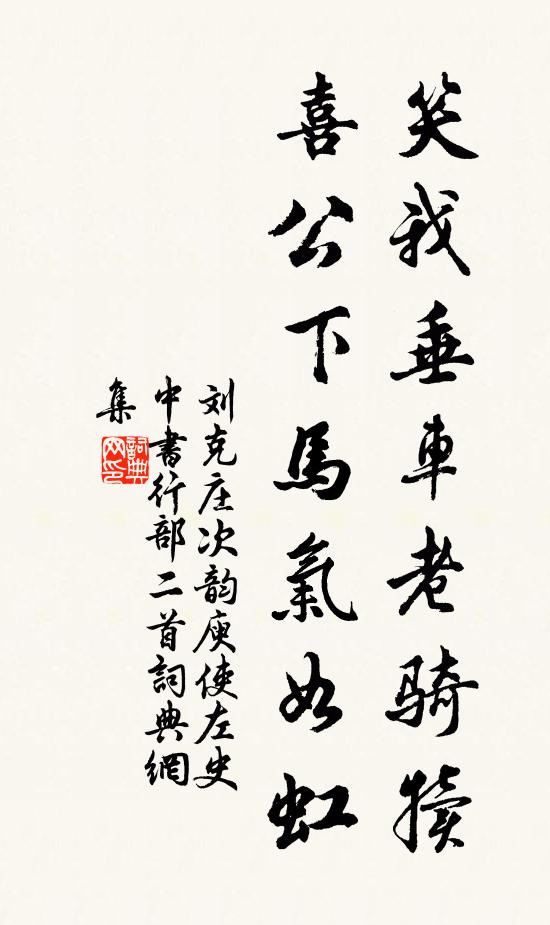 笑我垂車老騎犢
喜公下馬氣如虹
刘克庄次韵庾使左史
中書行部二首詞典網
集
詞典網印